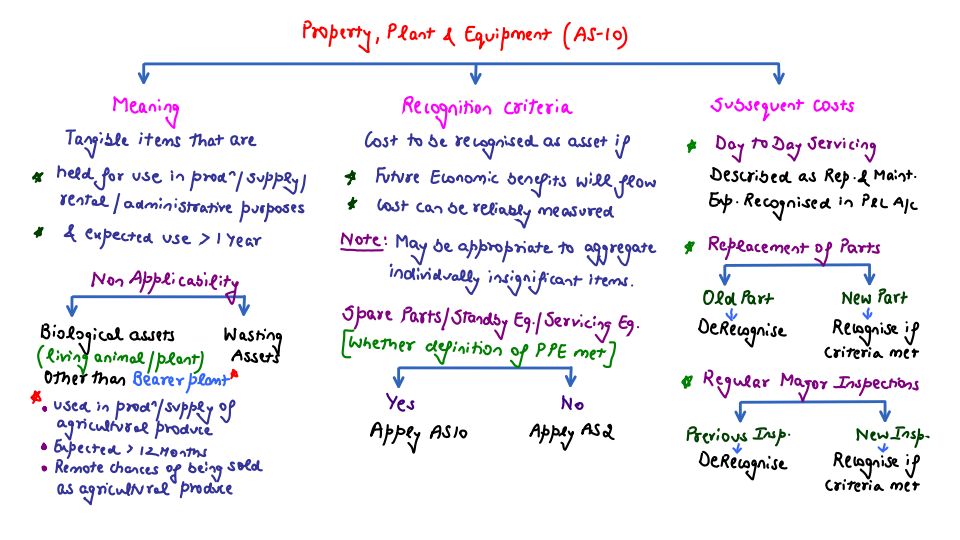 Property, Plant & Equipment (AS-10)
Meaning
Tangible items that are
held for use in prodⁿ/supply/
rental/administrative purposes
& expected use > 1 Year
Non Applicability
Biological assets
(living animal/plant)
Other than Bearer plant
Wasting
Assets
• used in prodⁿ/supply of
agricultural produce
• Expected > 12 Months
• Remote chances of being sold
as agricultural produce
Recognition criteria
Cost to be recognised as asset if
Future Economic benefits will flow
Cost can be reliably measured
Note: May be appropriate to aggregate
individually insignificant items.
Spare Parts/Standby Eq./Servicing Eq.
[Whether definition of PPE met]
Yes
Apply AS10
No
Apply AS2
Subsequent costs
Day to Day Servicing
Described as Rep. & Maint.
Exp. Recognised in P&L A/c
Replacement of Parts
Old Part
DeRecognise
New Part
Recognise if
Criteria met
Regular Major Inspections
Previous Insp.
DeRecognise
New Insp.
Recognise if
Criteria met